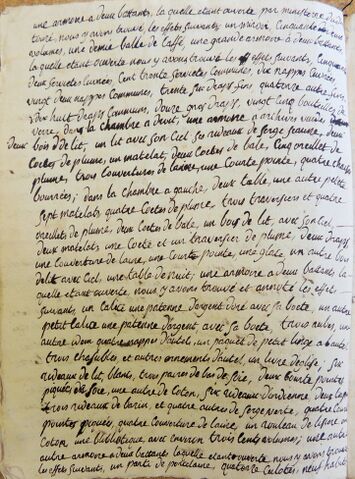 une armoire a deux battants, la quelle etant ouverte par ministere
nous y avons trouvé les effets suivants, un cinquante
volumes, une demie balle de caffé, une grande armoire a deux battants
la quelle etant ouverte nous y avons trouvé les effets suivants, Cinquante
deux serviettes ouvrées, Cent trente serviettes Communes, dix nappes ouvrées
vingt deux nappes Communes, trente six draps fins quatorze autres
dix huit draps Communs, douze gros draps, vingt cinq bouteilles de
verre, dans la chambre a droit, une armoire a archives vuide
Deux bois de lit, un lit avec son Ciel ses rideaux de serge jaune, deux
Coetes de plume, un matelat, deux Coetes de bale, Cinq oreillet de
plume, trois couvertures de laine, une Courte pointe, quatre chaises
bourrées; dans la chambre a gauche, deux table, une autre petite
sept matelats quatre Coetes de plume, trois traversiers et quatre
oreillets de plume, deux Coetes de bale, un bois de lit, avec son Ciel,
deux matelats, une Coete et un traversier de plume, deux draps
une Couverture de laine, une Courte pointe, une glace, un autre bois
de lit avec Ciel, une table de nuit; une armoire a deux battants la
quelle etant ouverte, nous y avons trouvé et annoté les effets
suivants, un Calice une patenne d'argent doré avec sa boete, un autre
petit Calice une patenne d'argent avec sa boete, trois aubes, un
autre idem quatre nappes d'autel, un paquet de petit linge a
trois chasubles et autres ornements d'autel, un livre d'eglise; six
rideaux de lit, blancs, trois paires de bas de soie, deux Courte pointes
piquées de soie, une autre de Coton, six rideaux d'indienne, deux
trois rideaux de et quatre autres de serge verte, quatre Courte
pointes piquées, quatre Couverture de laine, un rouleau de
Coton, une bibliotheque, avec environ trois cents volumes; une autre
autre armoire a deux battants laquelle etant ouverte nous y avons trouvé
les effets suivants, un parti de porcelaine, quatorze Culotes, neuf habits